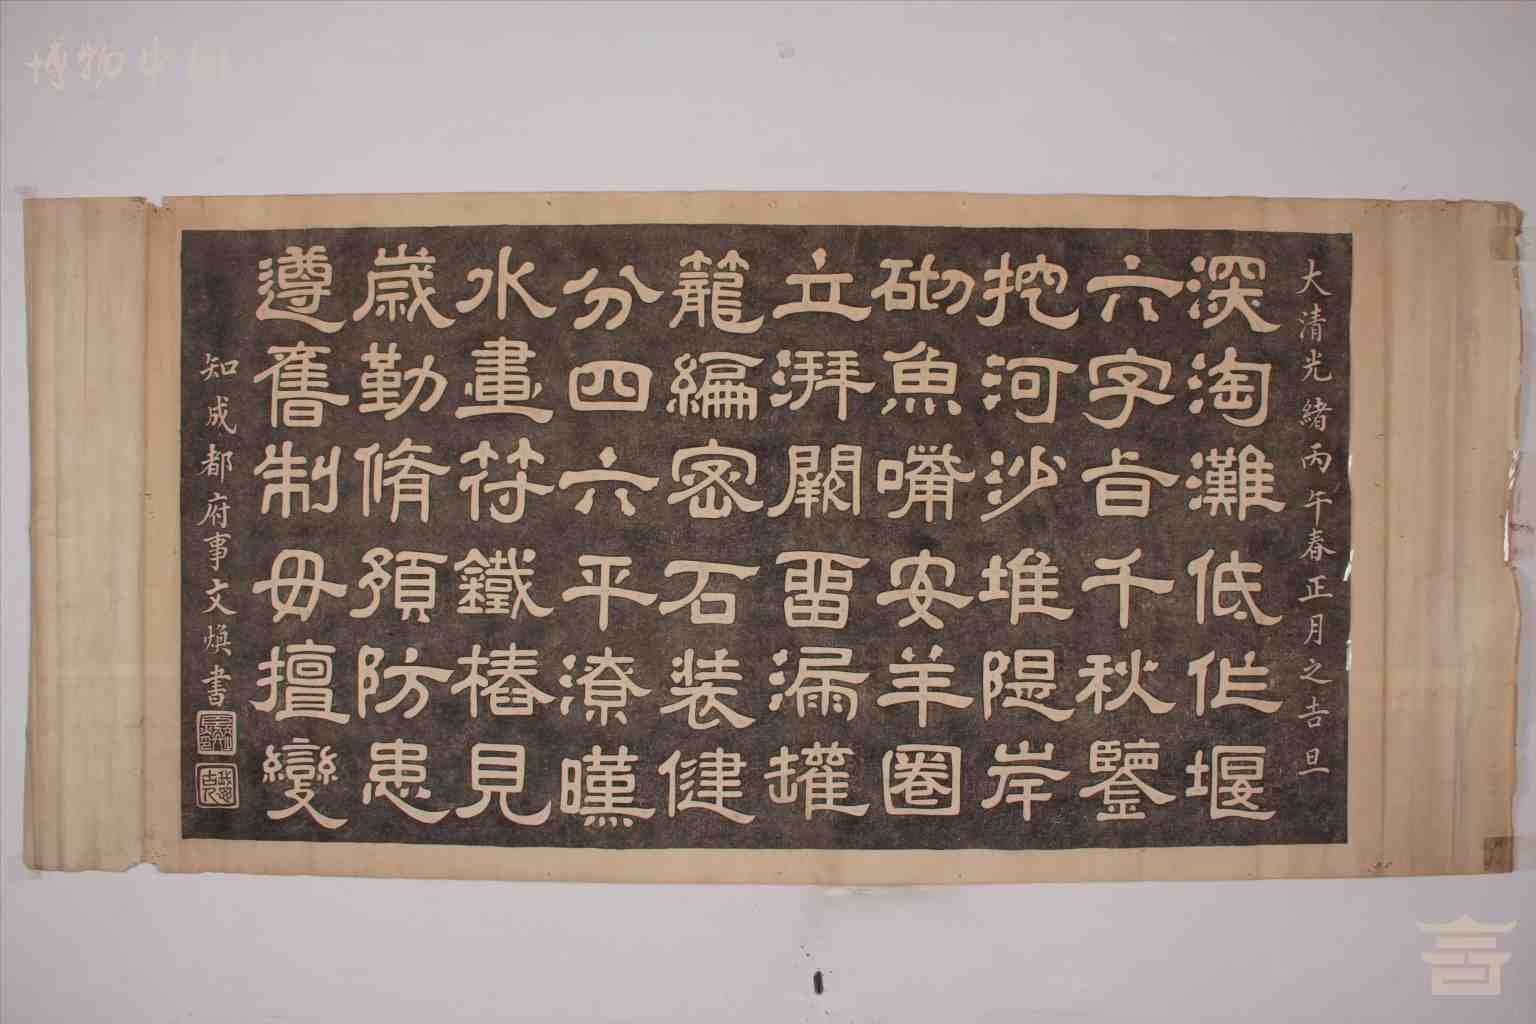 博物中国
大清光緒丙午春正月之吉旦
深淘灘低作堰
六字旨千秋鑒
挖河沙堆隄岸
砌魚嘴安羊圈
立湃闕留漏罐
籠編密石装健
分四六平潦暵
水畫符鐵樁見
歲勤脩預防患
遵舊制毋擅變
知成都府事文煥書